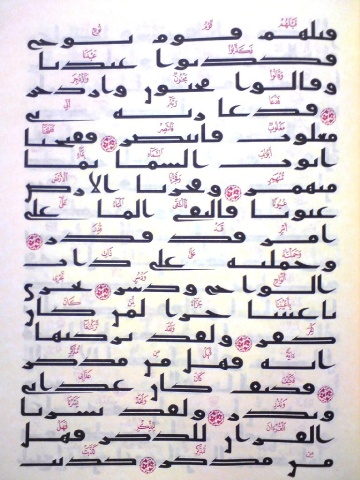 قبلهم قوم نوح
فكذبوا عبدنا
وقالوا مجنون وازدجر
۝ فدعا ربه اني
مغلوب فانتصر ۝ ففتحنا
ابواب السما بما
منهمر ۝ وفجرنا الارض
عيونا فالتقى الما على
امر قد قدر ۝
وحملنه على ذات
الواح ودسر ۝ تجري
باعيننا جزا لمن كان
كفر ۝ ولقد تركنها
ايه فهل من مدكر
۝ فكيف كان عذابي
ونذر ۝ ولقد يسرنا
القران للذكر فهل
من مدكر ۝ كذبت